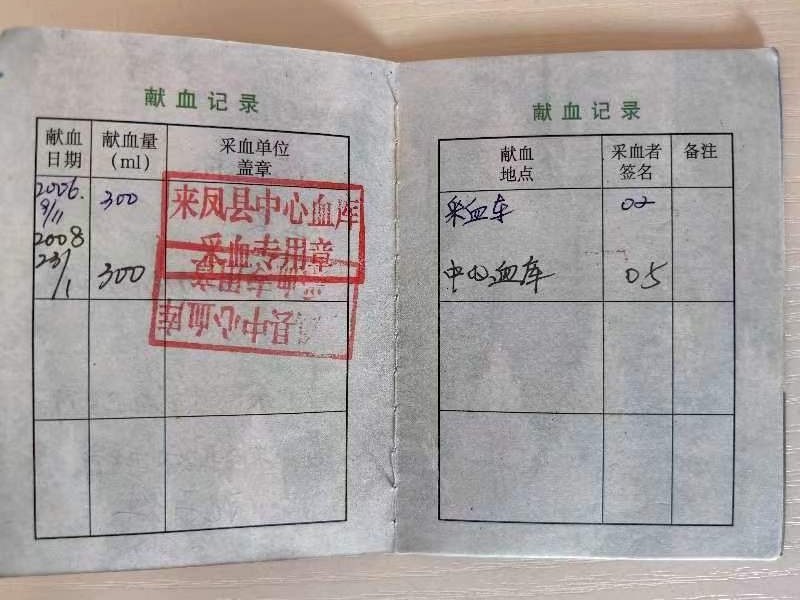 献血记录
献血日期
献血量(ml)
采血单位盖章
2006.
9/11
300
2008
23/1
300
来凤县中心血库
采血专用章
采血专用章
县中心血库
献血记录
献血地点
采血者签名
备注
采血车
02
中心血库
05